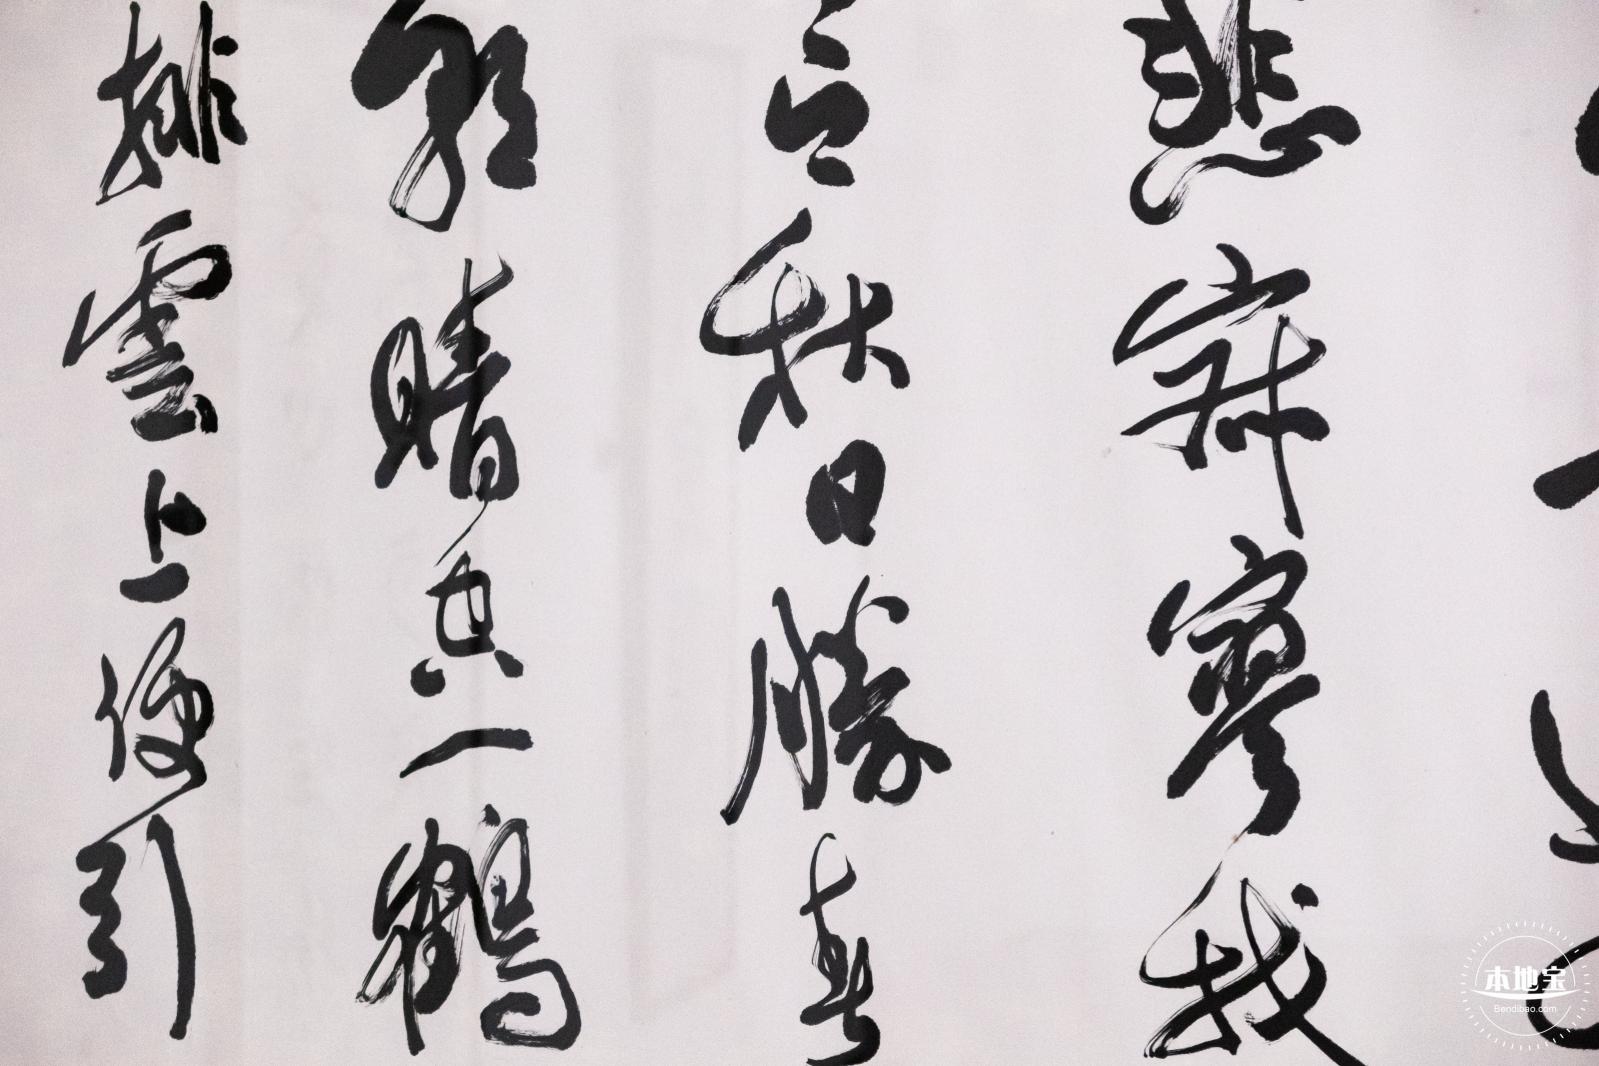 悲寂寥我
言秋日勝春
朝晴空一鶴
排雲上便引
本地宝
Bendibao.com